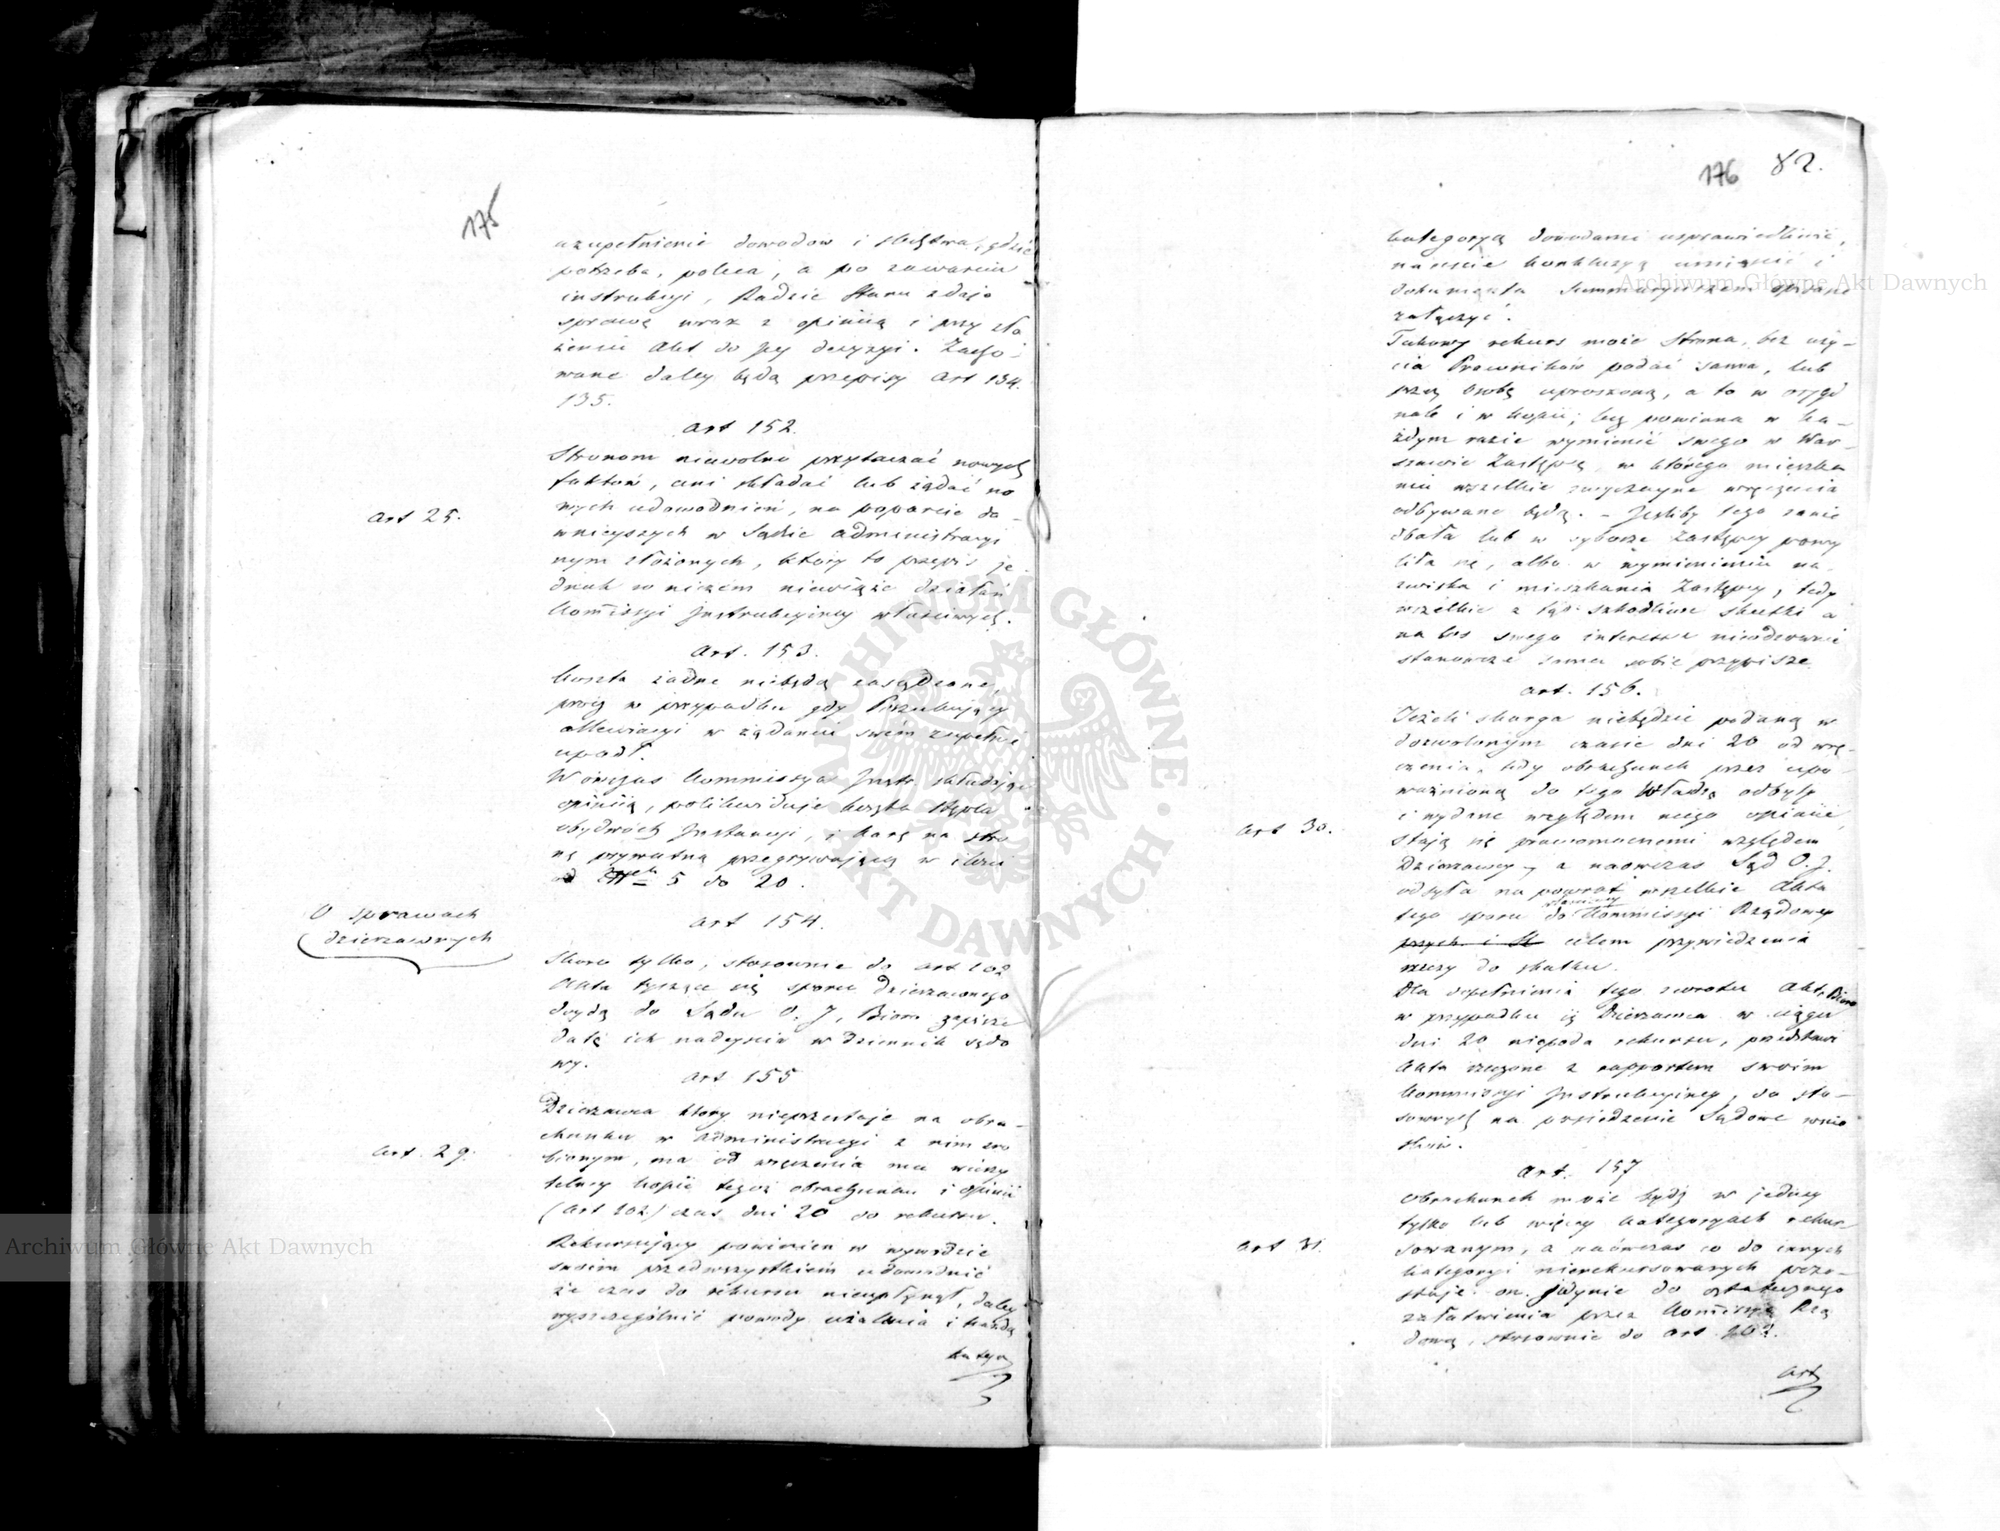 175
uzupełnienie dowodów i śledztwa, gdzie
potrzeba, poleca, a po zawarciu
instrukcyi, Radzie Stanu zdaje
sprawę wraz z opinią i przy zło
żeniu Akt do jey decyzyi. Zacho
wane daley będą przepisy Art 134.
135.
Art 152.
Stronom niewolno przytaczać nowych
faktów, ani składać lub żądać no
wych udowodnień, na poparcie da-
wnieyszych w Sądzie administracyi
nym złożonych, który to przepis je
dnak w niczem niewiąże działań
Kommissyi Instrukcyiney właściwych.
Art 25.
Art. 153.
Koszta żadne niebędą zasądzone,
prócz w przypadku gdy Poszukujący
allewiacyi w żądaniu swém zupełnie
upadł.
Wówczas Kommissya Instr. składając
opinią, polikwiduje koszta stępla
obydwóch Instancyi, i karę na stro
nę prywatną przegrywającą w ilości
od 5 do 20.
Art 154.
O sprawach
dzierzawnych
Skoro tylko, stosownie do Art 202
Akta tyczące się sporu dzierzawnego
doydą do Sądu O. J., Biom zapisze
datę ich nadeyścia w dziennik sądo
wy.
Art 155
Dzierzawca który nieprzestaje na obra-
chunku w Administracyi z nim zro
bionym, ma od wręczenia mu wierzy
telney kopii tegoż obrachunku i opinii
(Art 202) czas dni 20 do rekursu.
Art. 29.
Rekursujący powinien w wywodzie
swoim przedewszystkiém udowodnić
że czas do rekursu nieupłynął, daley
wyszczególnić powody użalenia i każdą
katego
176 82.
kategoryą dowodami usprawiedliwić,
nareście konkluzyą umieścić i
dokumenta Summaryuszem spisane
załączyć.
Takowy rekurs może Strona, bez uży-
cia Prawników podać sama, lub
przez osobę uproszoną, a to w orygi
nale i w kopii; lecz powinna w ka-
żdym razie wymienić swego w War-
szawie Zastępcę, w którego mieszka
niu wszelkie zwyczayne wręczenia
odbywane będą. - Jeśliby tego zanie
dbała lub w wyborze Zastępcy pomy
liła się, albo w wymienieniu na-
zwiska i mieszkania Zastępcy, tedy
wszelkie z tąd szkodliwe skutki a
na los swego interessu nieodzownie
stanowcze sama sobie przypisze
Art. 156.
Jeżeli skarga niebędzie podaną w
dozwolonym czasie dni 20 od wrę-
czenia, tedy obrachunek przez upo-
ważnioną do tego Władzę odbyty
i wydane względem niego opinie,
stają się prawomocnemi względem
Dzierzawcy, a naowczas Sąd O. J.
odsyła na powrot wszelkie Akta
tego sporu do Kommissyi Rządowey
celem przywiedzenia
rzeczy do skutku.
Art 30.
Dla dopełnienia tego zwrotu Akt, Biom
w przypadku iż Dzierzawca w ciągu
dni 20 niepoda rekursu, przedstawi
Akta rzeczone z rapportem swoim
Kommissyi Instrukcyiney, do sto-
sownych na posiedzenie Sądowe wnio
sków.
Art. 157
Obrachunek może bydź w jedney
tylko lub więcey kategoryach rekur-
sowanym, a naówczas co do innych
kategoryi nierekursowanych pozo-
staje on jedynie do ostatecznego
załatwienia przez Kommissyą Rzą
dową, stosownie do Art 202.
Art 31.
Art
Archiwum Główne Akt Dawnych
Archiwum Główne Akt Dawnych
ARCHIWUM GŁÓWNE · AKT DAWNYCH ·